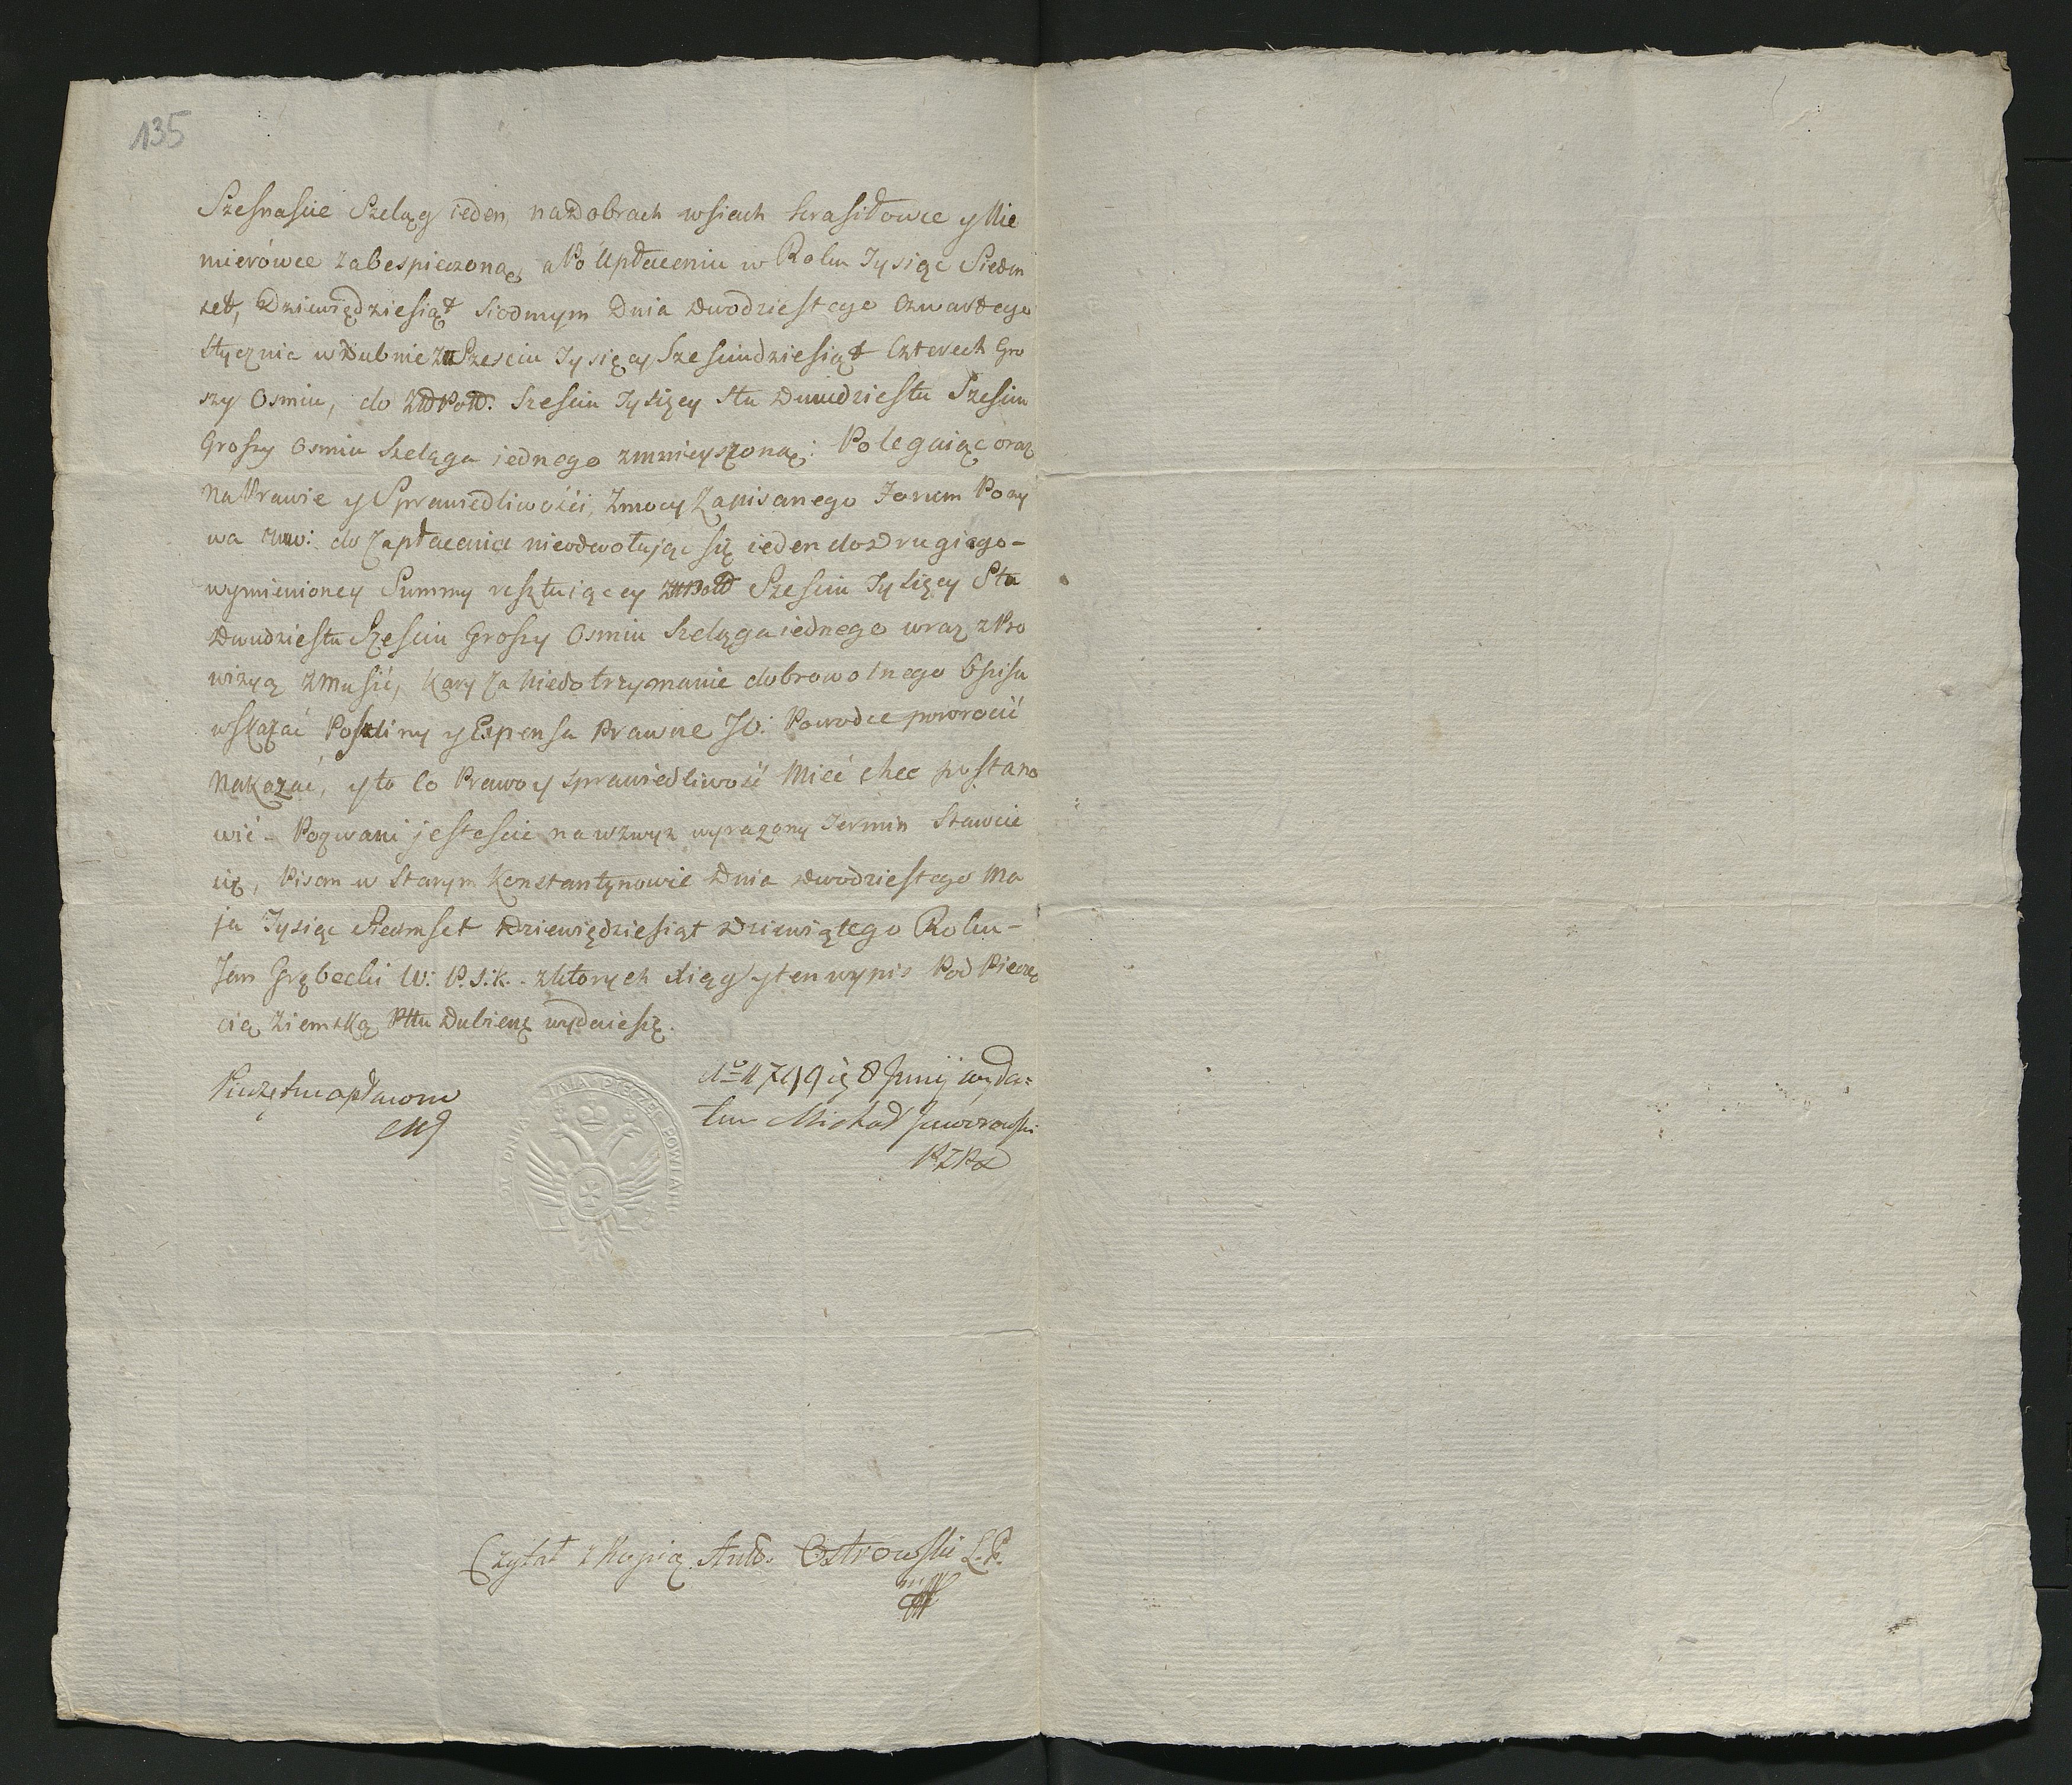 135
Szesnaście Szeląg ieden, na dobrach wsiach Krasiłowce y Nie
mierówce zabespieczoną, a Po Upłaceniu w Roku Tysiąc Siedm
set, Dziewiędziesiąt Siodmym Dnia dwudziestego Czwartego
Stycznia w Dubnie Szesciu Tysięcy Szesciudziesiąt Czterech Gro
szy Osmiu, do Szesciu Tysięcy Stu Dwudziestu Szesciu
Groszy Osmiu Szeląga iednego zmnieyszoną: Polegaiąc oraz
na Prawie y Sprawiedliwości, z mocy Zapisanego Forum Pozy
wa do Zapłacenia nieodwołując się ieden do drugiego-
wymienioney Summy resztuiącey Szesciu Tysięcy Stu
Dwudziestu Szesciu Groszy Osmiu Szeląga iednego wraz z Pro
wizyą zmusić, kary za niedotrzymanie dobrowolnego Opisu
wskazać Poszliny y Expensa Prawne Powodce powrocić
Nakazać, y to co Prawo y sprawiedliwość Mieć chce postano
wić - Pozwani jesteście na wzwyz wyrazony Termin Stawcie
się, Pisan w Starym Konstantynowie Dnia dwudziestego Ma
ja Tysiąc Siedmset Dziewiędziesiąt Dziewiątego Roku-
Jan Grębecki W: P. S: K. - z ktorych xiąg y ten wypis Pod Pieczę
cią Ziemską Pttu Dubiens wydaie się.
Pieczętne opłacono
A° 1799 8 Junij wyda=
łem Michał Jaworowski
PZPD
PIECZĘĆ POWIATU
Czytał z Kopią Ant. Ostrowski